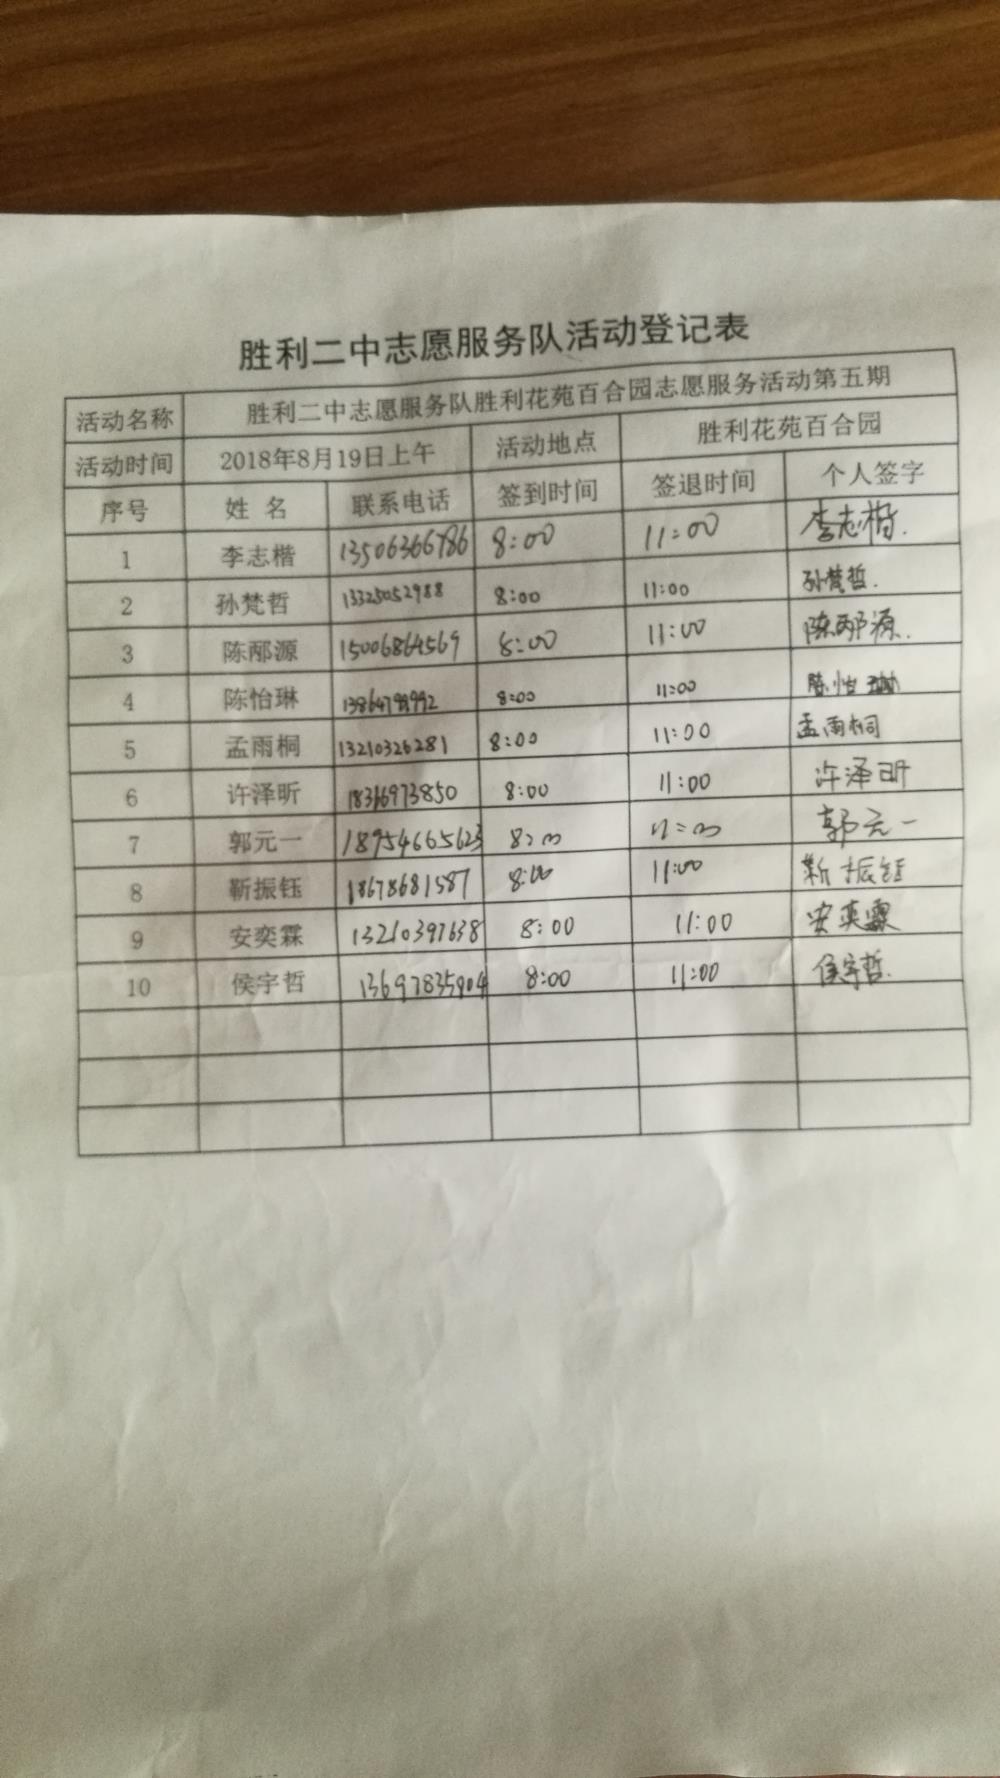 胜利二中志愿服务队活动登记表
活动名称 胜利二中志愿服务队胜利花苑百合园志愿服务活动第五期
活动时间 2018年8月19日上午 活动地点 胜利花苑百合园
序号 姓 名 联系电话 签到时间 签退时间 个人签字
1 李志楷 13506366786 8:00 11:00 李志楷.
2 孙梵哲 13325052988 8:00 11:00 孙梵哲.
3 陈邴源 15006864569 8:00 11:00 陈邴源.
4 陈怡琳 8:00 11:00 陈怡琳
5 孟雨桐 13210326281 8:00 11:00 孟雨桐
6 许泽昕 18366973850 8:00 11:00 许泽昕
7 郭元一 18954665623 8:00 11:00 郭元一
8 靳振钰 18678681587 8:00 11:00 靳振钰
9 安奕霖 13210397638 8:00 11:00 安奕霖
10 侯宇哲 13697835904 8:00 11:00 侯宇哲.